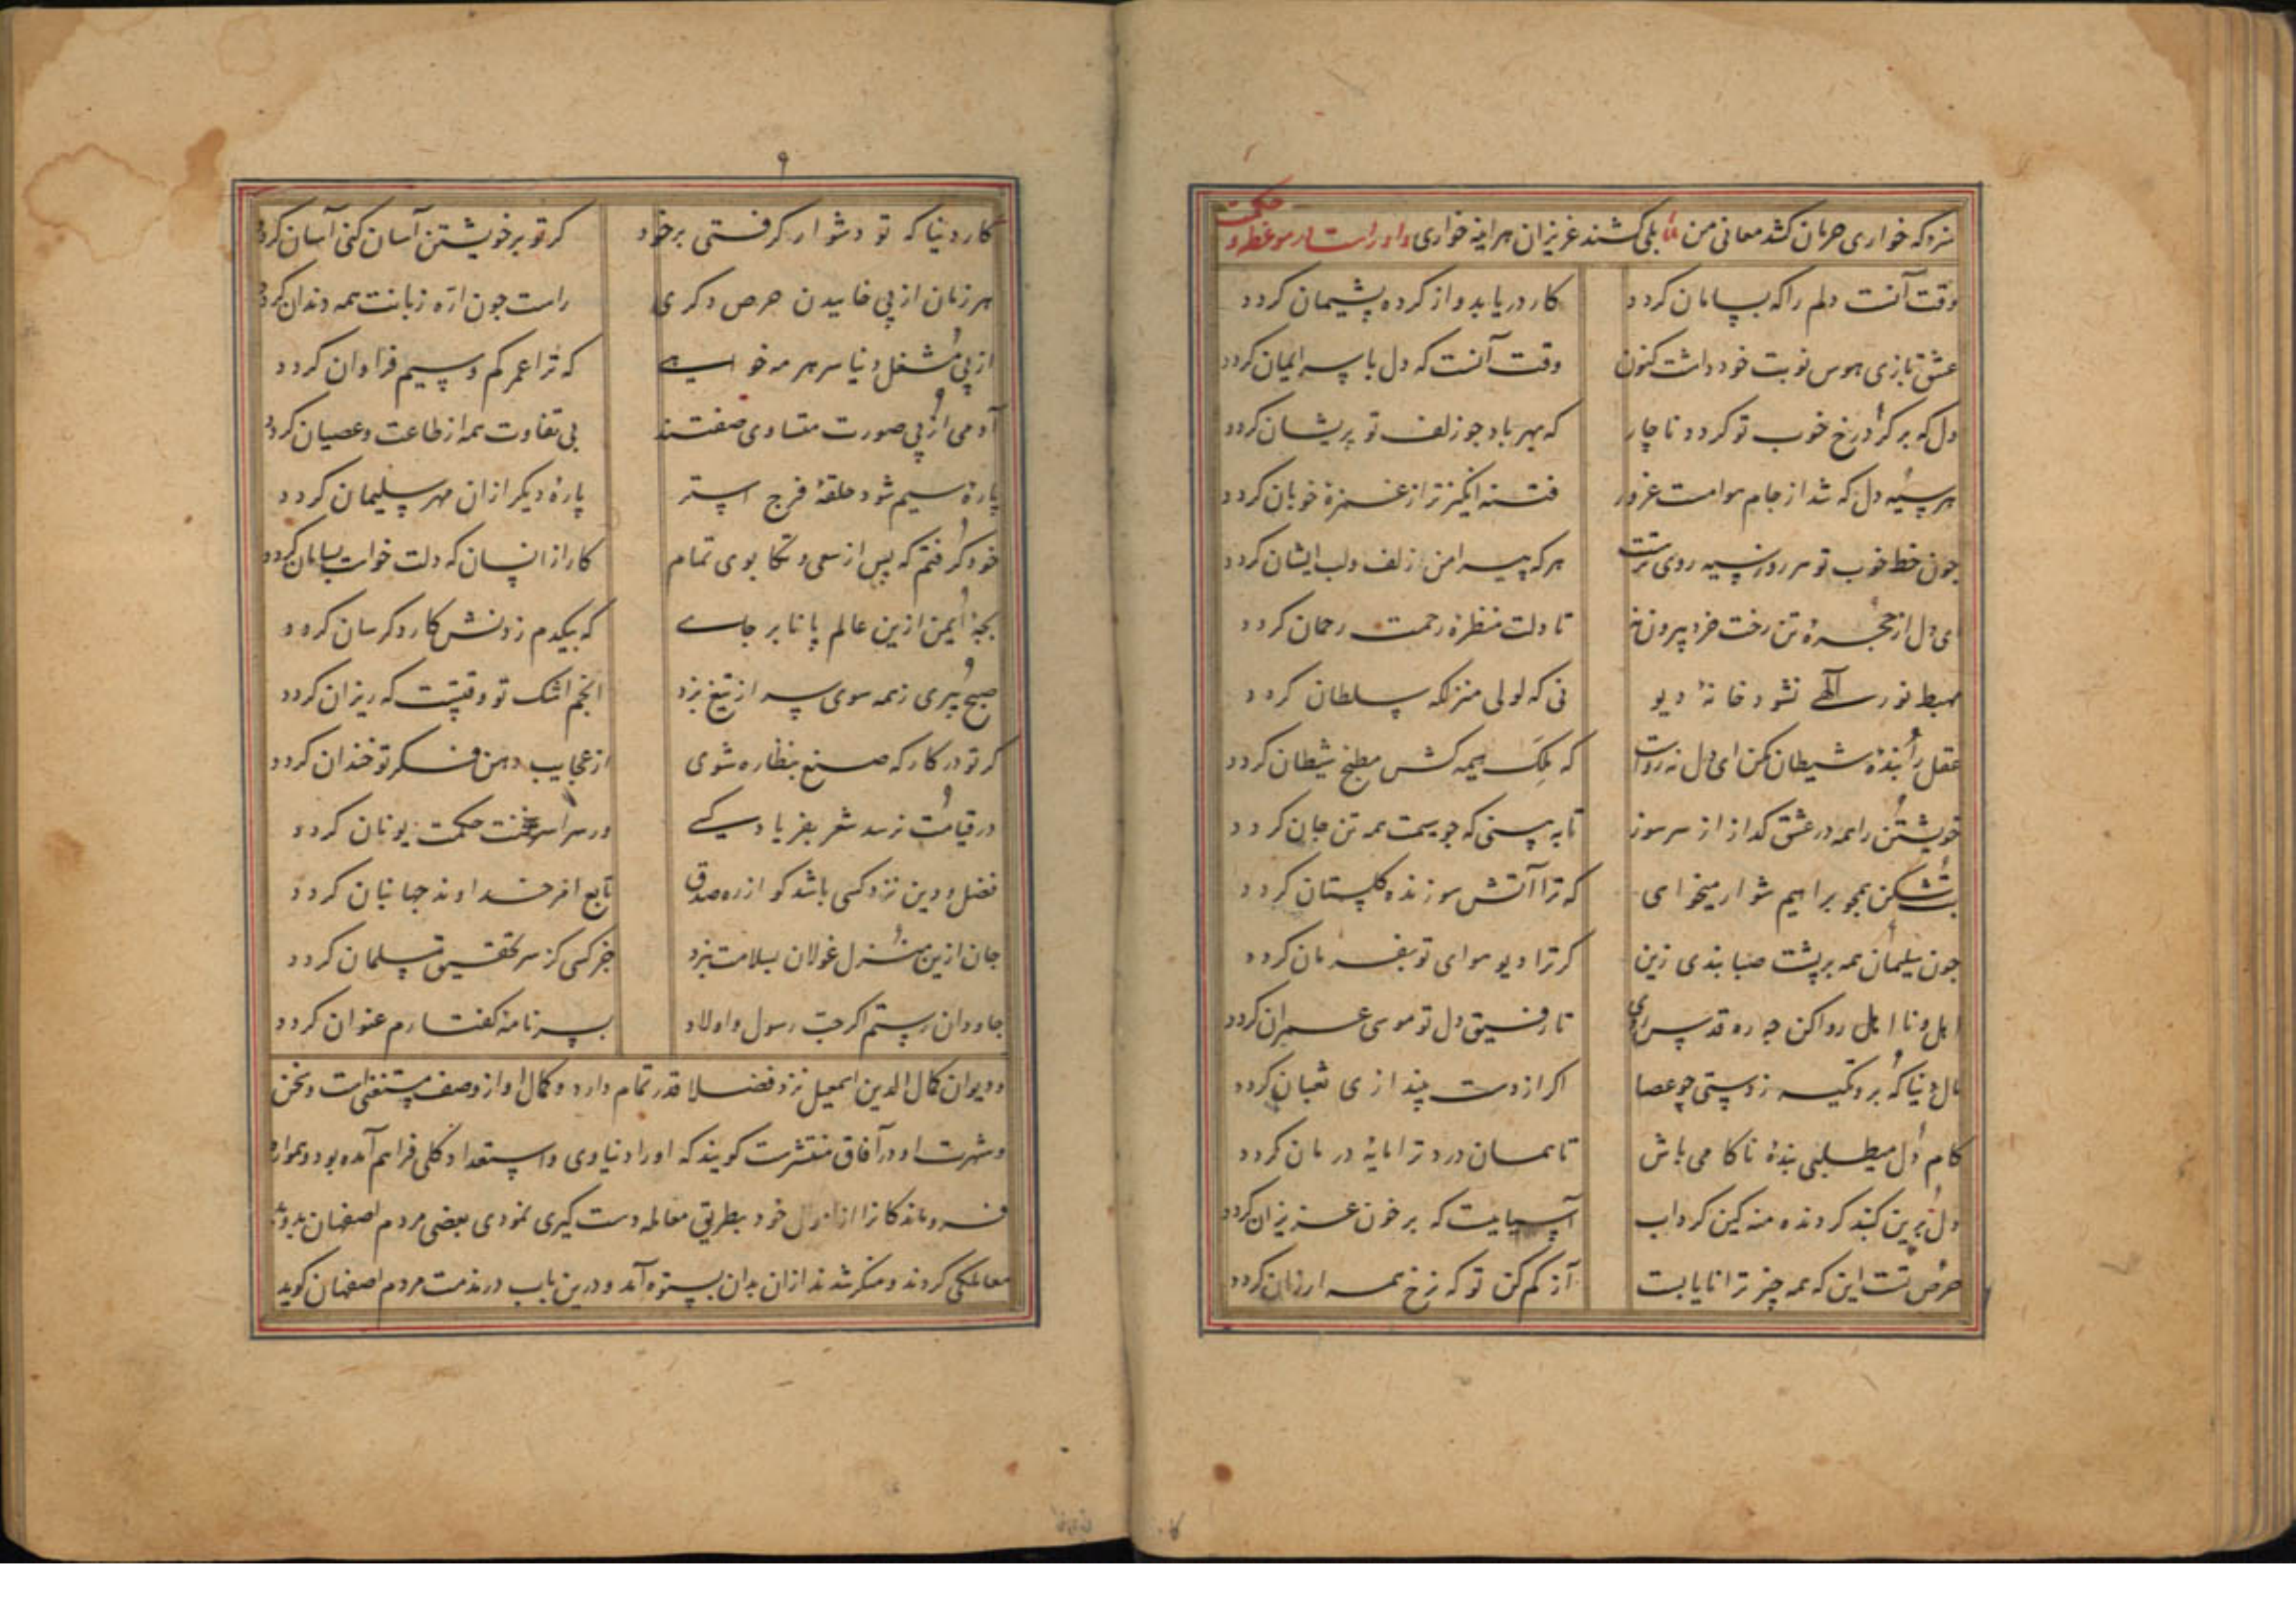 سزد که خواری حرمان کشد معانی من بلی کشند عزیزان هر اینه خواری و او راست در موعظه و حکمت
وقت آنست دلم را که بسامان کردد کار دریابد و از کرده پشیمان کردد
عشق بازی هوس نوبت خود داشت کنون وقت آنست که دل با سر ایمان کردد
دل که بر کرد رخ خوب تو کردد ناچار که بهر باد جو زلف تو پریشان کردد
هر سیه دل که شد از جام هوا مست غرور فتنه انکیزتر از غمزهٔ خوبان کردد
جون خط خوب تو هر روز سیه روی ترست هرکه پیرامن زلف و لب ایشان کردد
ای دل از حجرهٔ تن رخت خرد بیرون نه تا دلت منظرهٔ رحمت رحمان کردد
مهبط نور آلهی نشود خانهٔ دیو نی که لولی منزلکه سلطان کردد
عقل را بندهٔ شیطان مکن ای دل نه رواست که ملک هیمه کش مطبخ شیطان کردد
خویشتن را همه در عشق کداز از سر سوز تا به بینی که جو سیمت همه تن جان کردد
بت شکن همجو براهیم شو ار میخواهی که ترا آتش سوزنده کلستان کردد
جون سلیمان همه بر پشت صبا بندی زین کر ترا دیو هوای تو بفرمان کردد
اهل و نا اهل رها کن جو ره قدس روی تا رفیق دل تو موسی عمران کردد
مال دنیا که برو تکیه زدستی جو عصا اکر از دست بیندازی ثعبان کردد
کام دل میطلبی بندهٔ ناکامی باش تا همان درد ترا مایهٔ درمان کردد
دل برین کنبد کردنده منه کین کرداب آسیاییست که بر خون عزیزان کردد
حرص تست این که همه چیز ترا نایابست آز کم کن تو که نرخ همه ارزان کردد
۹
کار دنیا که تو دشوار کرفتی بر خود کر تو بر خویشتن آسان کنی آسان کردد
هر زمان از پی خاییدن حرص دکری راست جون اره زبانت همه دندان کردد
از پی مشغل دنیا سر هر مه خواهی که ترا عمر کم و سیم فراوان کردد
آدمی از پی صورت متساوی صفتند بی تفاوت همه از طاعت و عصیان کردد
پارهٔ سیم شود حلقهٔ فرج استر پارهٔ دیکر ازان مهر سلیمان کردد
خود کرفتم که پس از سعی و تکا بوی تمام کار از انسان که دلت خواست بسامان کردد
بجه ایمن ازین عالم پا نا بر جای که بیکدم زدنش کار دکرسان کردد
صبح پیری زهمه سوی سر از تیغ بزد انجم اشک تو وقتیست که ریزان کردد
کر تو در کارکه صنع بنظاره شوی از عجایب دهن فکر تو خندان کردد
در قیامت نرسد شعر بفریاد کسی ور سراسر سخنت حکمت یونان کردد
فضل و دین نزد کسی باشد کو از ره صدق تابع امر خداوند جهانبان کردد
جان ازین منزل غولان بسلامت نبرد جز کسی کز سر تحقیق مسلمان کردد
جاودان رستم اکر حب رسول و اولاد بسر نامهٔ کفتارم عنوان کردد
و دیوان کمال الدین اسمعیل نزد فضلا قدر تمام دارد و کمال او از وصف مستغنی است و سخن
و شهرت او در آفاق منتشرست کویند که او را دنیاوی و استعداد کلی فراهم آمده بود و همواره
فروماندکانرا از اموال خود بطریق معامله دست کیری نمودی بعضی مردم اصفهان بدو
معاملکی کردند و منکر شدند ازان بدان بستوه آمد و درین باب در مذمت مردم اصفهان کوید